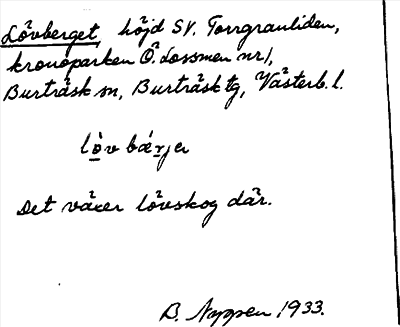 Lövberget höjd SV. Torrgranliden,
kronoparken Ö. Lossmen nr 1,
Burträsk sn, Burträsk tg, Västerb. l.
lòv bæ̀rjer
Det växer lövskog där.
B. Nyppen 1933.